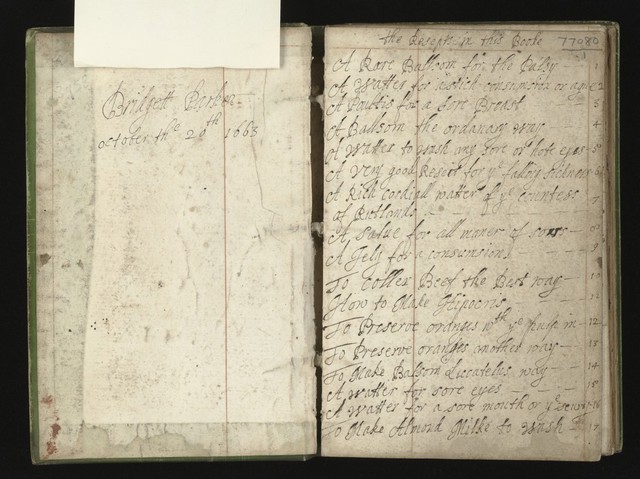 Bridgett Parker
october the 20th 1663
the Resepts in this Booke 77080
A Rare Ballsom for the Palsy 1
A Watter for a stich consumcion or ague 2
A Poultis for a sore Breast 3
A Ballsom the ordanary way 4
A Watter to wash any sore or hote eyes 5
A very good Reseit for ye fallin sicknes 6
A Rich Cordiall watter of ye countess
of Rutlands 7
A salve for all maner of sores 8
A Jely for a consumsion 9
To Coller Beef the Best way 10
How to Make Hipocris 11
To Preserve oranges wth ye pulp in 12
To Preserve oranges another way 13
To Make Balsom Luccatellus way 14
A Watter for sore eyes 15
A Watter for a sore mouth or ye scurvy 16
To Make Almond Milke to wash 17